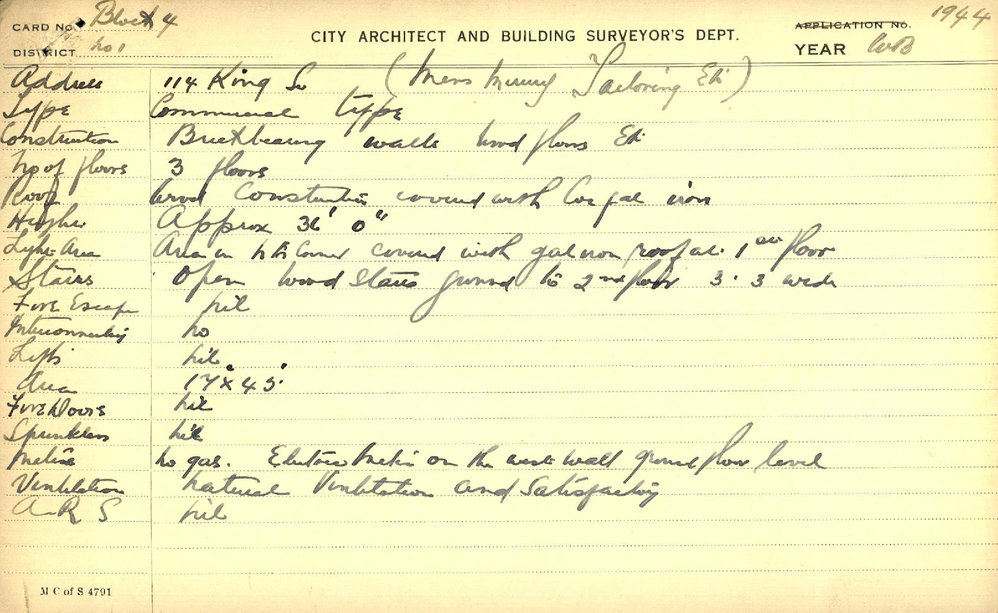 CARD No. Block 4
DISTRICT No 1
CITY ARCHITECT AND BUILDING SURVEYOR'S DEPT.
APPLICATION NO. 1944
YEAR
Address 114 King St (Mens Tailoring Etc)
Type Commercial type
Construction Brickbearing walls wood floors Etc
No of floors 3 floors
Roof wood Construction covered with Cor gal iron
Height Approx 36' 0"
Light Area Area in covered with gal iron roof at 1st floor
Stairs Open wood Stairs ground to 2nd floor 3.3 wide
Fire Escape nil
Interconnecting no
Lifts nil
Area 17' x 45'
Fire Doors nil
Sprinklers nil
Meters no gas. Electric Meter on the west wall ground floor level
Ventilation natural Ventilation and Satisfactory
A R S nil
M C of S 4791